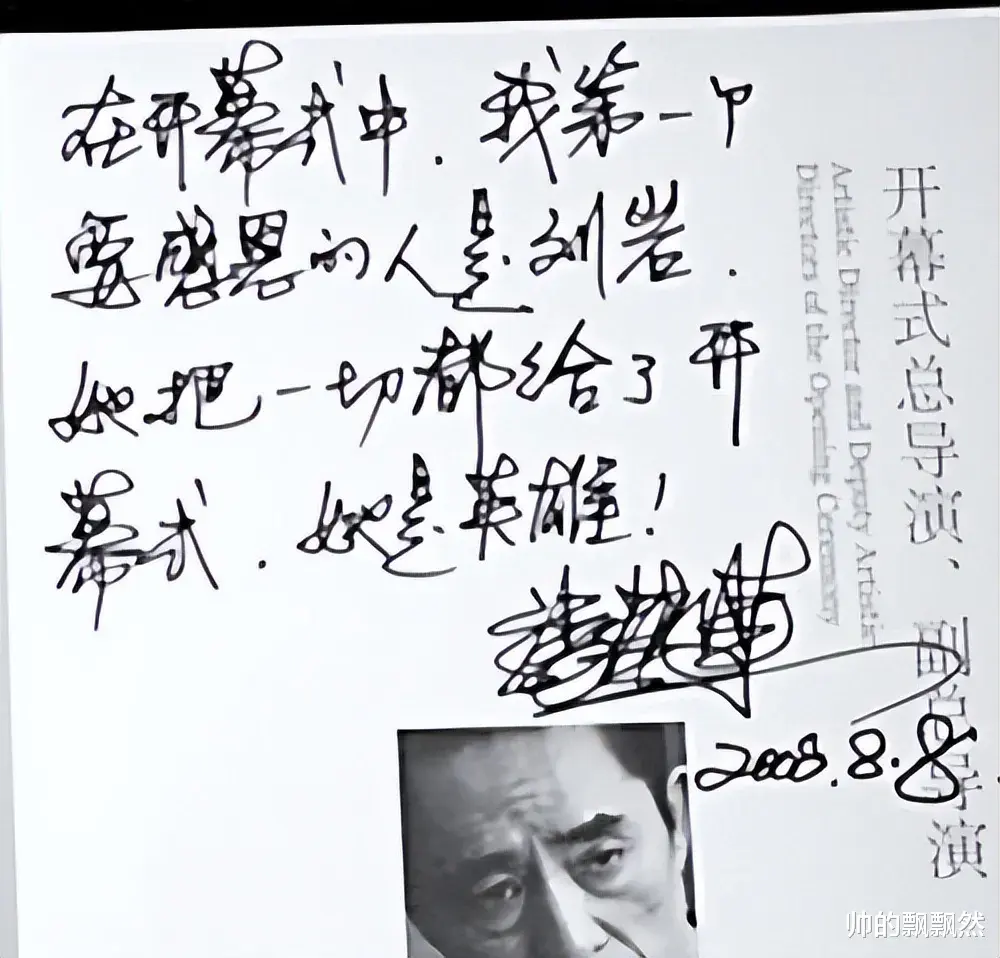 在开幕式中.我第一个
要感恩的人是刘岩.
她把一切都给了开
幕式.她是英雄!
2008.8.8
开幕式总导演、副总导演
Artistic Director and Deputy Artistic
Directors of the Opening Ceremony
帅的飘飘然